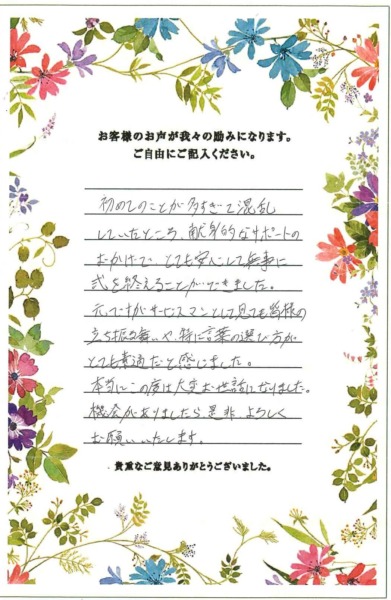 お客様のお声が我々の励みになります。
ご自由にご記入ください。
初めてのことが多すぎて混乱
していたところ、献身的なサポートの
おかげで、とても安心して無事に
式を終えることができました。
元ですがサービスマンとして見ても皆様の
立ち振る舞いや、特に言葉の選び方が
とても素適だと感じました。
本当にこの度は大変お世話になりました。
機会がありましたら是非よろしく
お願いいたします。
貴重なご意見ありがとうございました。